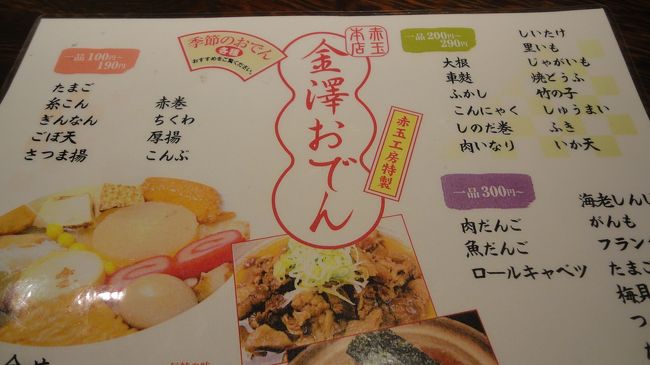 一品100円~190円
たまご
糸こん
ぎんなん
ごぼ天
さつま揚
赤巻
ちくわ
厚揚
こんぶ
季節のおでん
各種
おすすめをご覧ください。
赤玉本店
金澤おでん
赤玉工房特製
一品200円~290円
大根
車麩
ふかし
こんにゃく
しのだ巻
肉いなり
しいたけ
里いも
じゃがいも
焼とうふ
竹の子
しゅうまい
ふき
いか天
一品300円~
肉だんご
魚だんご
ロールキャベツ
海老しんじ
がんも
フランク
たまご
梅貝
つ